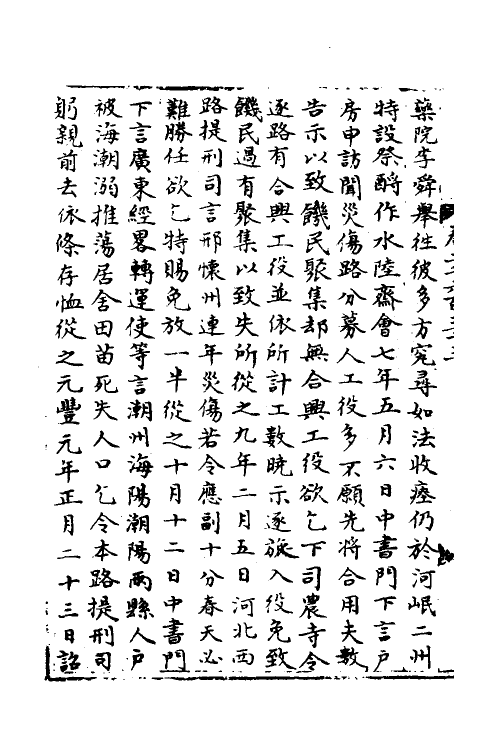 藥院李舜舉往彼多方究尋如法收瘞仍於河岷二州
特設祭酹作水陸齋會七年五月六日中書門下言戶
房申訪聞災傷路分募人工役多不願先將合用夫數
告示以致饑民聚集却無合興工役欲乞下司農寺令
逐路有合興工役並依所計工數曉示逐旋入役免致
饑民過有聚集以致失所從之九年二月五日河北西
路提刑司言邢懷州連年災傷若令應副十分春天必
難勝任欲乞特賜免放一半從之十月十二日中書門
下言廣東經畧轉運使等言潮州海陽潮陽兩縣人戶
被海潮溺推蕩居舍田苗死失人口乞令本路提刑司
躬親前去依條存恤從之元豐元年正月二十三日詔